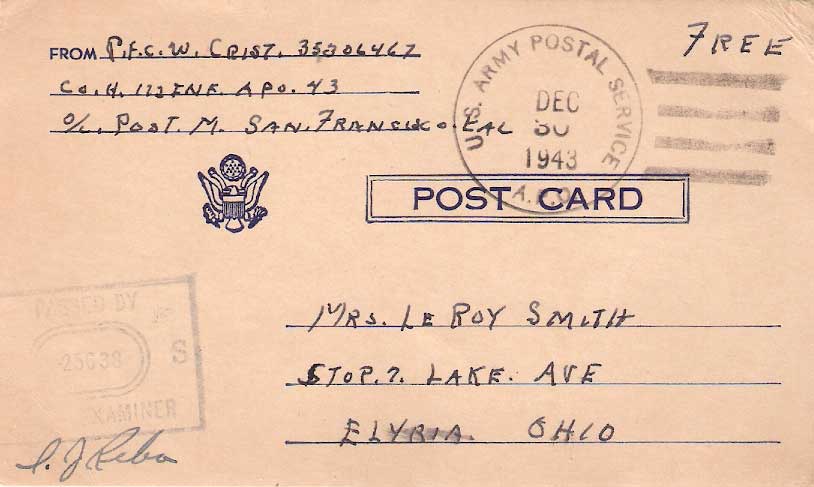 FROM P.F.C. W. CRIST. 35306467
FREE
Co. H. 172 INF. APO. 43
C/o. POST. M. SAN. FRANSISCO. CAL
U.S. ARMY POSTAL SERVICE
DEC
30
1943
A.P.O.
POST CARD
PASSED BY
25638
S
EXAMINER
MRS. LE ROY SMITH
STOP. 7. LAKE. AVE
ELYRIA. OHIO